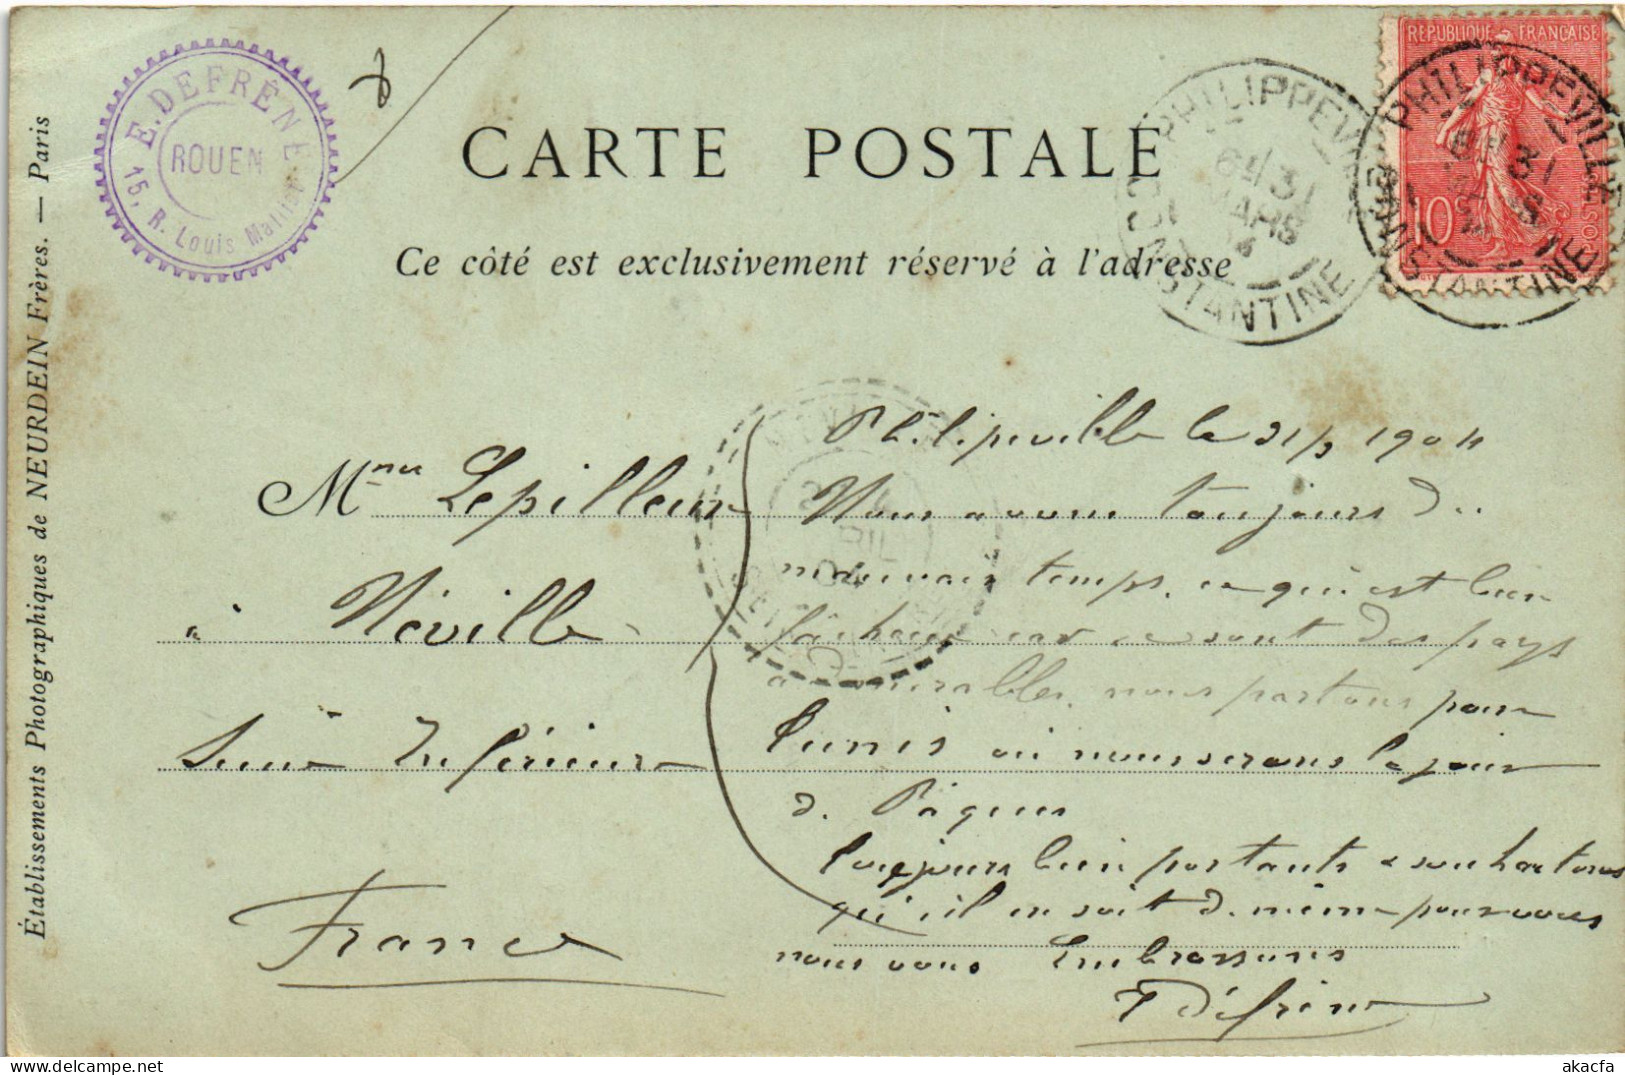 E. DEFRÊNE
ROUEN
15, R. Louis Malliot
CARTE POSTALE
Ce côté est exclusivement réservé à l'adresse
RÉPUBLIQUE FRANÇAISE
10
PHILIPPEVILLE
31
MARS
CONSTANTINE
PHILIPPEVILLE
31
CONSTANTINE
Établissements Photographiques de NEURDEIN Frères. — Paris
Mme Lepilleur
à Néville
Seine Inférieure
France
Philippeville le 31/3 1904
Nous avons toujours du
mauvais temps, ce qui est bien
fâcheux car ce sont des pays
admirables, nous partons pour
Tunis où nous serons le jour
de Pâques
Toujours bien portants & souhaitons
qu'il en soit de même pour vous
nous vous Embrassons
Défrène
akacfa